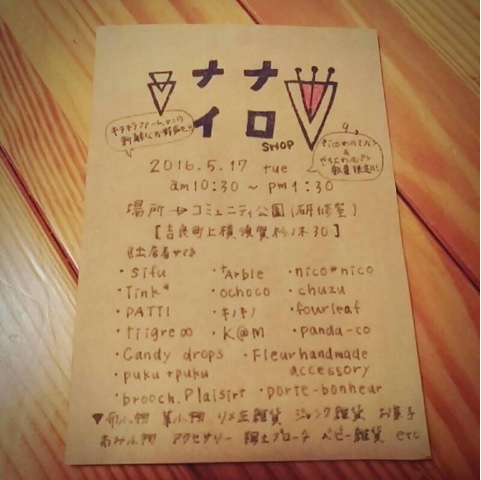 ナナ
イロ
SHOP
新鮮
数量限定!!
2016.5.17 tue
am10:30 ~ pm1:30
場所 → コミュニティ公園(研修室)
【吉良町上横須賀杉ノ木30】
・sifu ・†Arble ・nico*nico
・Tink* ・ochoco ・chuzu
・PATTI ・キノキノ ・fourleaf
・tiigre∞ ・K@M ・panda-co
・Candy drops ・Fleur handmade
accessory
・puku+puku
・brooch.Plaisirt ・porte-bonheur
▼布小物 革小物 リメ缶雑貨 ジャンク雑貨 お菓子
あみ小物 アクセサリー 粘土ブローチ ベビー雑貨 etc